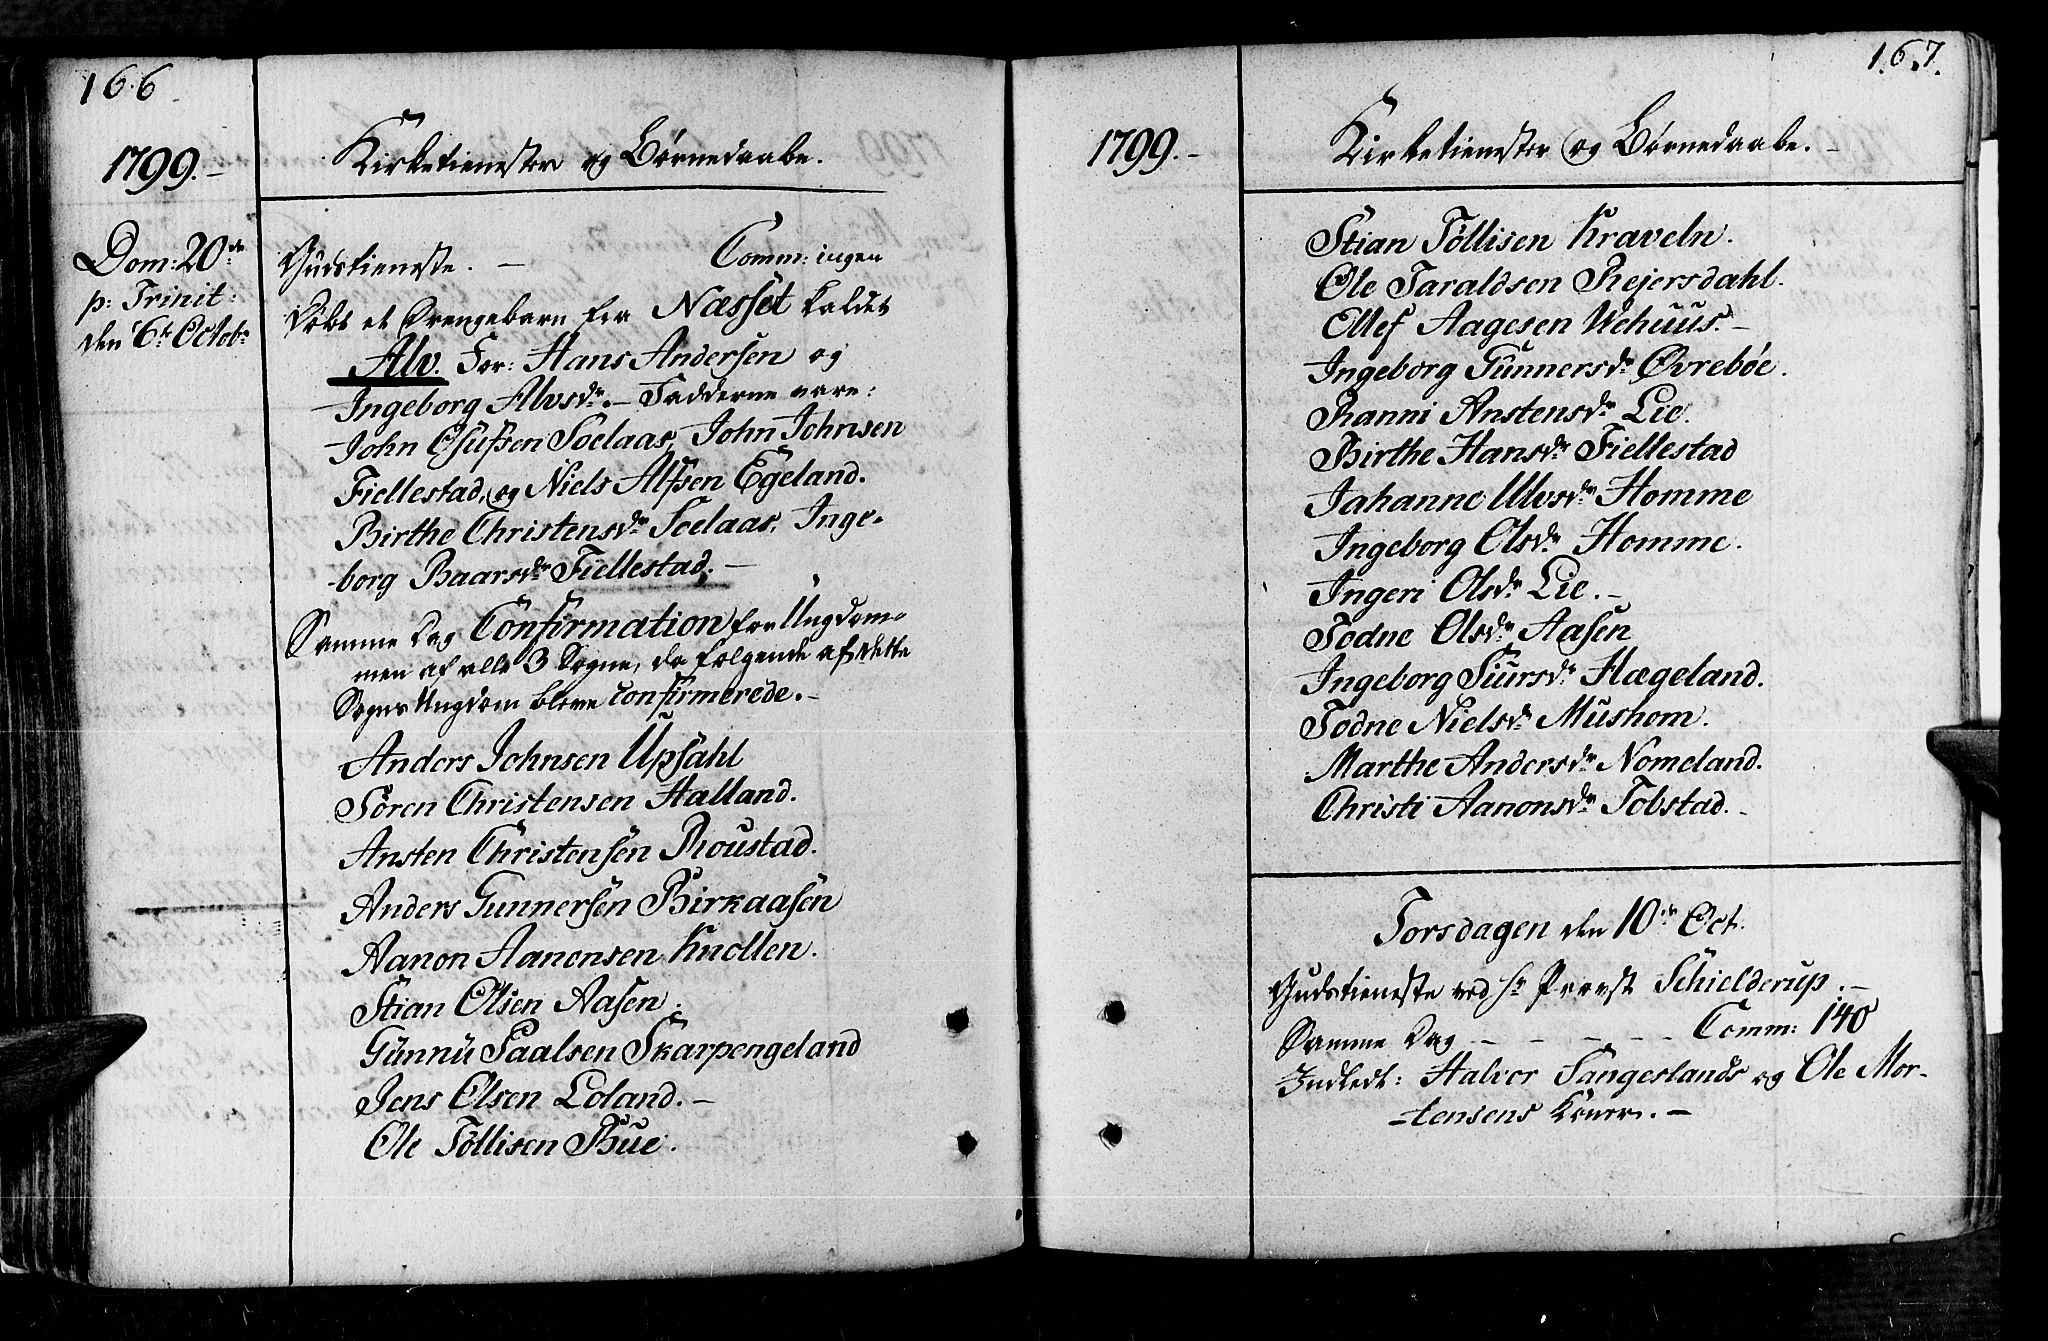 166
1799.-
Kirketienester og Børnedaabe.
Dom: 20de
p: Trinit:
den 6te Octobr
Gudstieneste. - Comm: ingen
Døbt et Drengebarn fra Næsset kaldet
Alv. For: Hans Andersen og
Ingeborg Alvsdr. - Fadderne vare:
John Osufsen Soelaas, John Johnsen
Fiellestad, og Niels Alfsen Egeland.
Birthe Christensdr Soelaas, Inge-
borg Baarsdr Fiellestad. -
Samme Dag Confirmation for Ungdom-
men af alle 3 Sogne, da følgende af dette
Sogns Ungdom bleve confirmerede. -
Anders Johnsen Upsahl
Sören Christensen Halland.
Ansten Christensen Roustad.
Anders Gunnersen Birkaasen
Aanon Aanonsen Knollen.
Stian Olsen Aasen.
Günnü Paalsen Skarpengeland
Jens Olsen Loland. -
Ole Töllisen Bue.
167.
1799. -
Kirketienester og Børnedaabe. -
Stian Töllisen Kraveln.
Ole Taraldsen Reiersdahl.
Ellef Aagesen Wehuus. -
Ingeborg Gunnersdr Øvrebøe.
Ranni Anstensdr Lie.
Birthe Hansdr Fiellestad
Jahanne Ulvsdr Homme
Ingeborg Olsdr Homme.
Ingeri Olsdr Lie. -
Todne Olsdr Aasen
Ingeborg Siursdr Hægeland.
Todne Nielsdr Mushom.
Marthe Andersdr Nomeland.
Christi Aanonsdr Tobstad. -
Torsdagen den 10de Oct.
Gudstieneste ved Hr Provst Schielderup. -
Samme Dag - - - - - Comm: 140
Indledt: Halvor Sangeslands og Ole Mor-
-tensens Koner. -